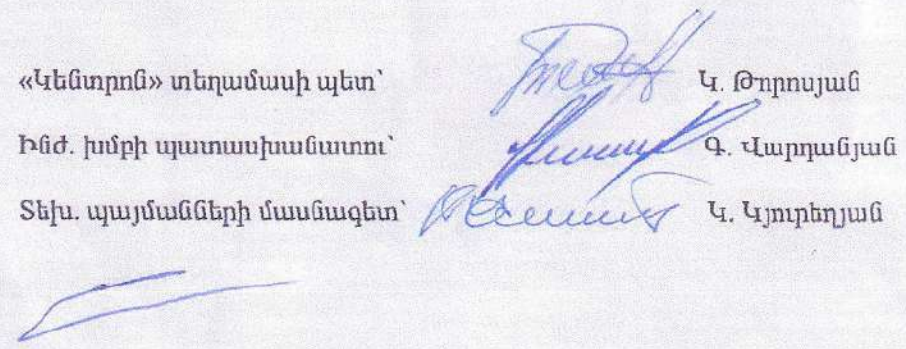 «Կենտրոն» տեղամասի պետ՝ Կ. Թորոսյան
Ինժ. խմբի պատասխանատու՝ Գ. Վարդանյան
Տեխ. պայմանների մասնագետ՝ Կ. Կյուրեղյան